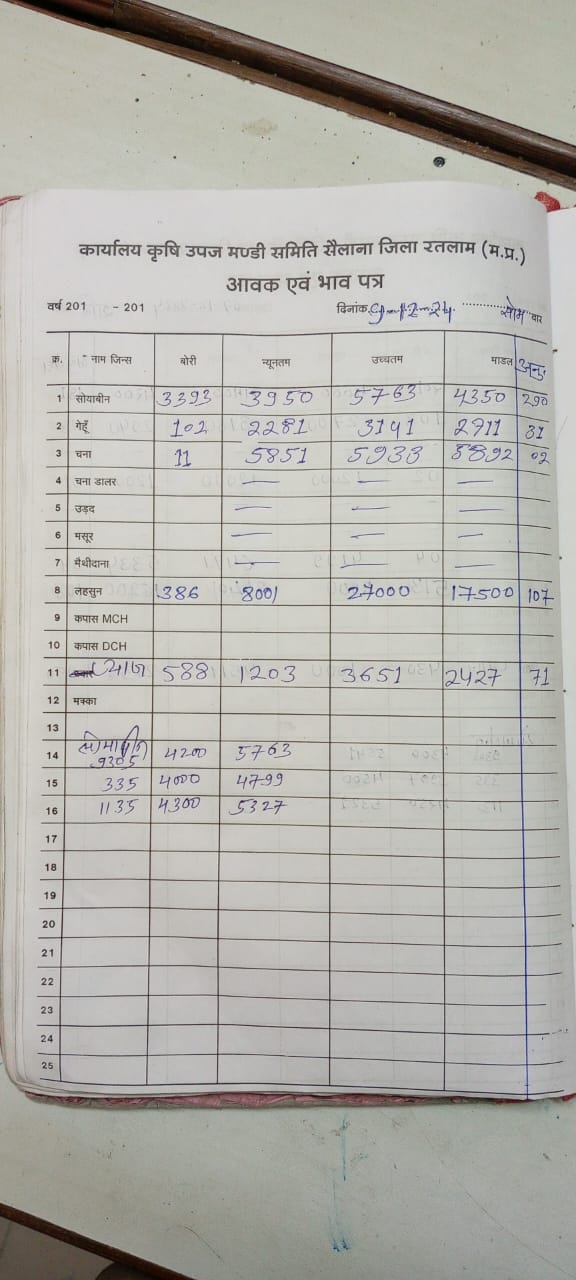 कार्यालय कृषि उपज मण्डी समिति सैलाना जिला रतलाम (म.प्र.)
आवक एवं भाव पत्र
वर्ष 201 - 201 दिनांक 9-12-24 सोम वार
क्र. नाम जिन्स बोरी न्यूनतम उच्चतम माडल अनु.
1 सोयाबीन 3393 3950 5763 4350 290
2 गेहूँ 102 2281 3141 2911 31
3 चना 11 5851 5933 5892 02
4 चना डालर — — —
5 उड़द — — —
6 मसूर — — —
7 मैथीदाना — — —
8 लहसुन 386 8001 27000 17500 107
9 कपास MCH
10 कपास DCH
11 प्याज 588 1203 3651 2427 71
12 मक्का
13
सोयाबीन
14 9305 4200 5763
15 335 4000 4799
16 1135 4300 5327
17
18
19
20
21
22
23
24
25